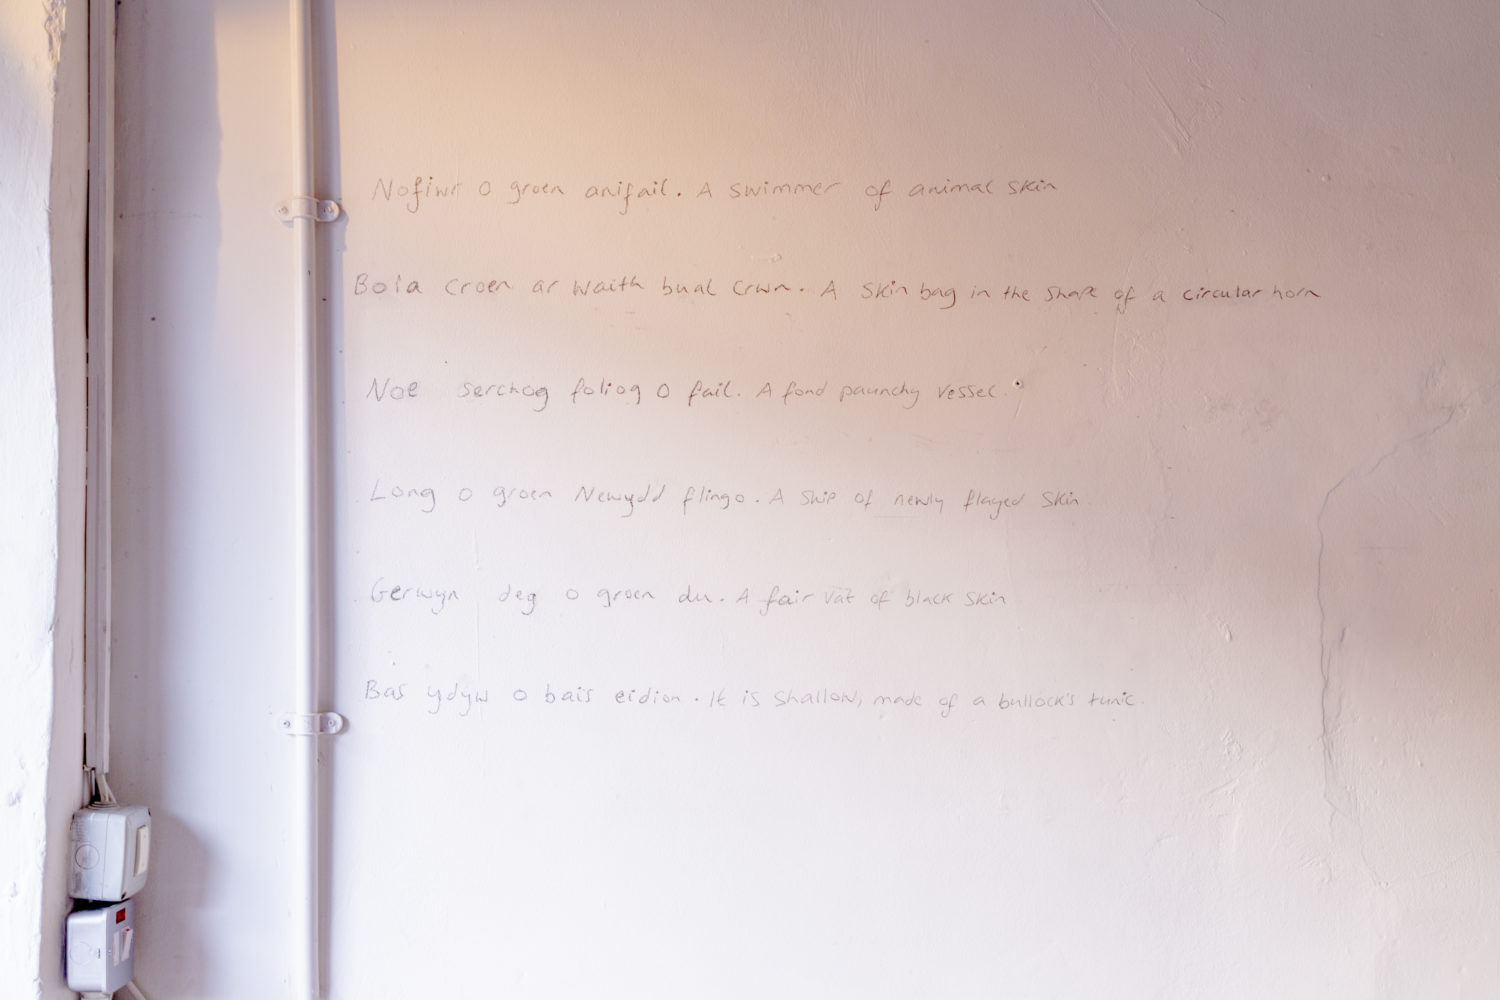 Nofiwr o groen anifail. A swimmer of animal skin
Bola croen ar waith bual crwn. A skin bag in the shape of a circular horn
Noe serchog foliog o fail. A fond paunchy vessel.
Long o groen Newydd flingo. A ship of newly flayed skin.
Gerwyn deg o groen du. A fair vat of black skin
Bas ydyw o bais eidion. It is shallow, made of a bullock's tunic.